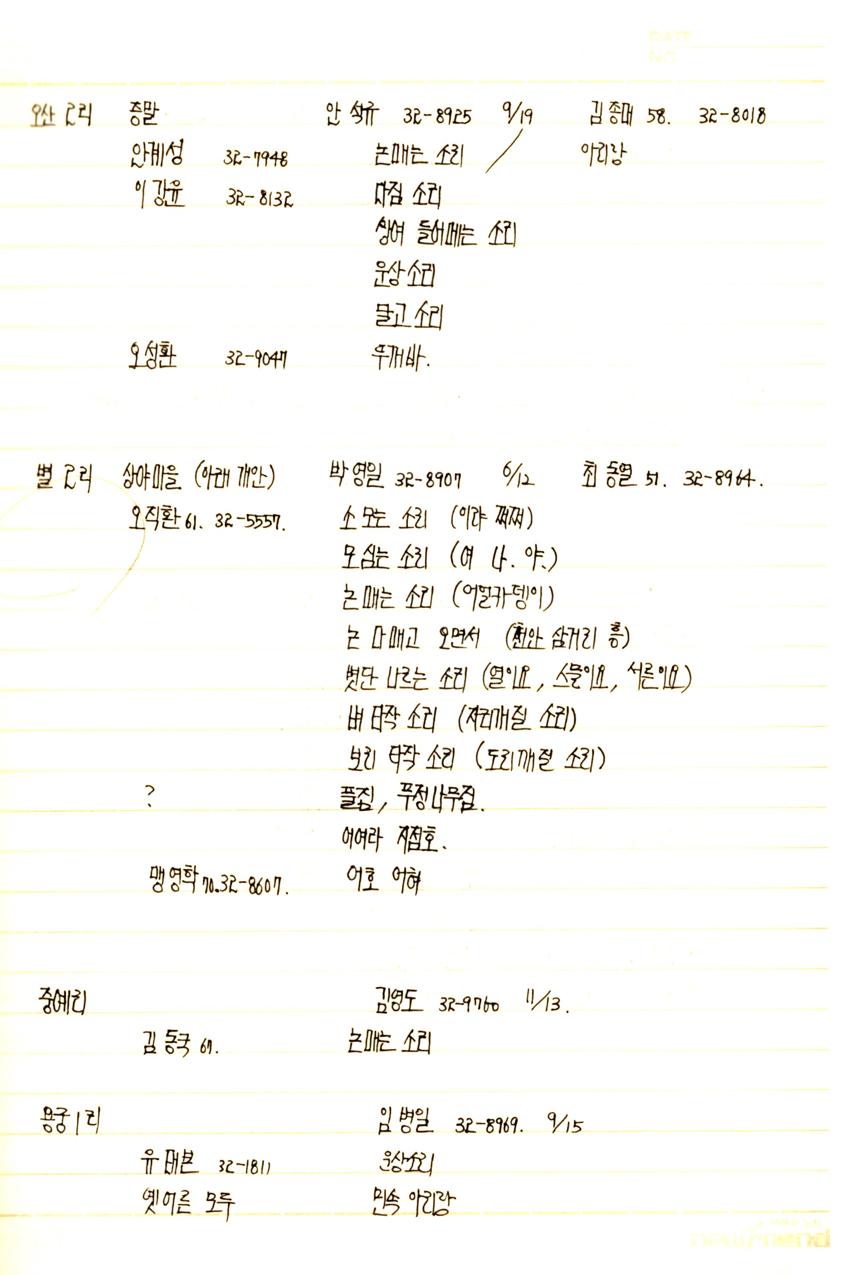 오산 2리 증말 안석규 32-8925 9/19 김종대 58. 32-8018
안계성 32-7948 논매는 소리 아리랑
이강윤 32-8132 다짐 소리
상여 들어메는 소리
운상소리
달고 소리
오성환 32-9047
벌 2리 상야마을 (아래 개안) 박영일 32-8907 6/12 최동열 51. 32-8964.
오직환 61. 32-5557. 소 모는 소리 (이랴 쩌쩌)
모심는 소리 (여 나. 야.)
논매는 소리 (어럴카뎅이)
논 다매고 오면서 (천안 삼거리 흥)
볏단 나르는 소리 (열이요, 스물이요, 서른이요)
벼 타작 소리 (자리개질 소리)
보리 타작 소리 (도리깨질 소리)
? 풀짐, 푸정나무짐.
어여라 지점호.
맹영학 70. 32-8607. 어호 어허
중예리 김영도 32-9760 11/13.
김동국 67. 논매는 소리
용궁1리 임병일 32-8969. 9/15
유태본 32-1811 운상소리
옛어른 모두 민속 아리랑